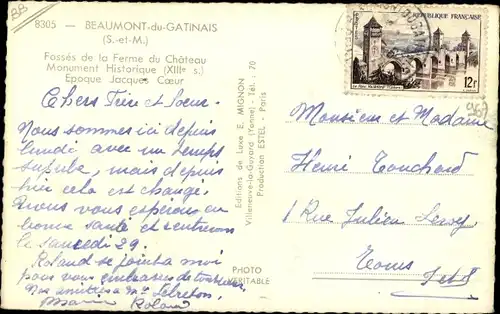 BB
8305 - BEAUMONT-du-GATINAIS
(S.-et-M.)
Fossés de la Ferme du Château
Monument Historique (XIIIᵉ s.)
Epoque Jacques Cœur
Chers Frère et Sœur
Nous sommes ici depuis
lundi avec un temps
superbe, mais depuis
hier cela est changé.
Nous vous espérons en
bonne santé et rentrerons
le samedi 29.
Roland se joint à moi
pour vous embrasser de tout cœur
Nos amitiés à Mᵉ Lebreton.
Roland
Editions de Luxe E. MIGNON
Villeneuve-la-Guyard (Yonne) - Tél. : 70
Production ESTEL - Paris
PHOTO
VÉRITABLE
REPUBLIQUE FRANÇAISE
12F
Monsieur et Madame
Henri Touchard
1 Rue Julien Leroy
Tours